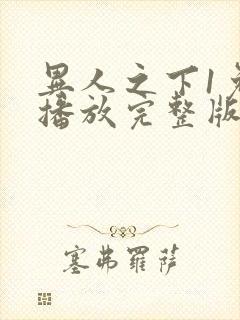 異人之下1免
播放完整版
塞弗羅薩